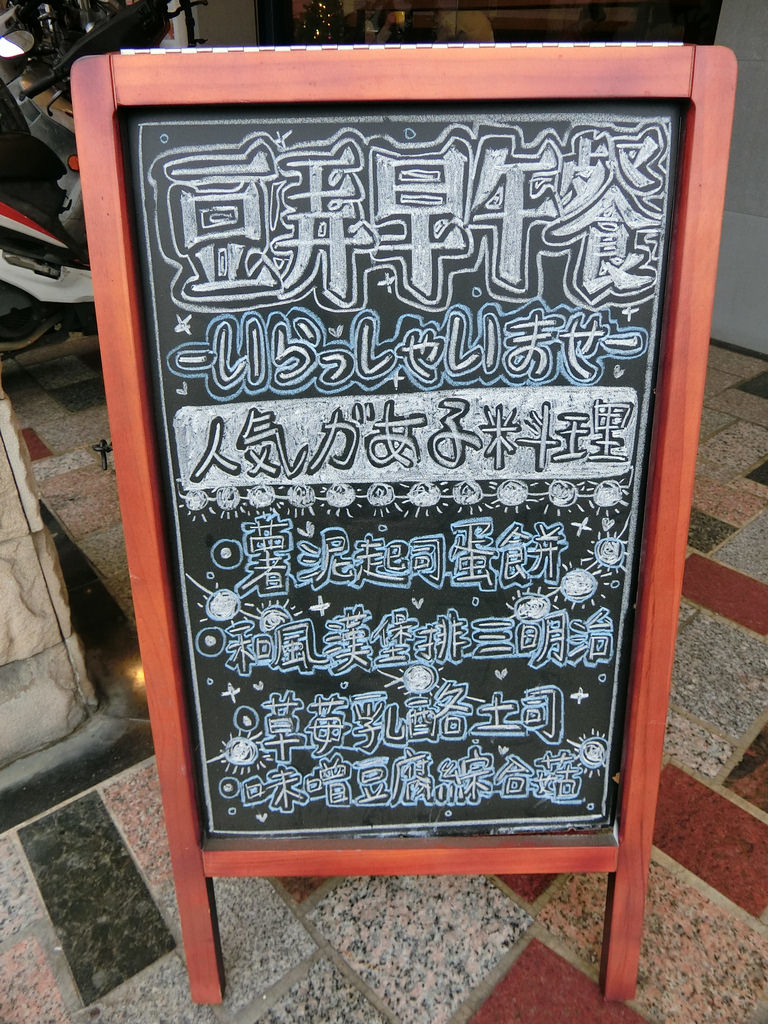 豆弄早午餐
-いらっしゃいませ-
人気がある料理
薯泥起司蛋餅
和風漢堡排三明治
草莓乳酪土司
味噌豆腐綜合菇